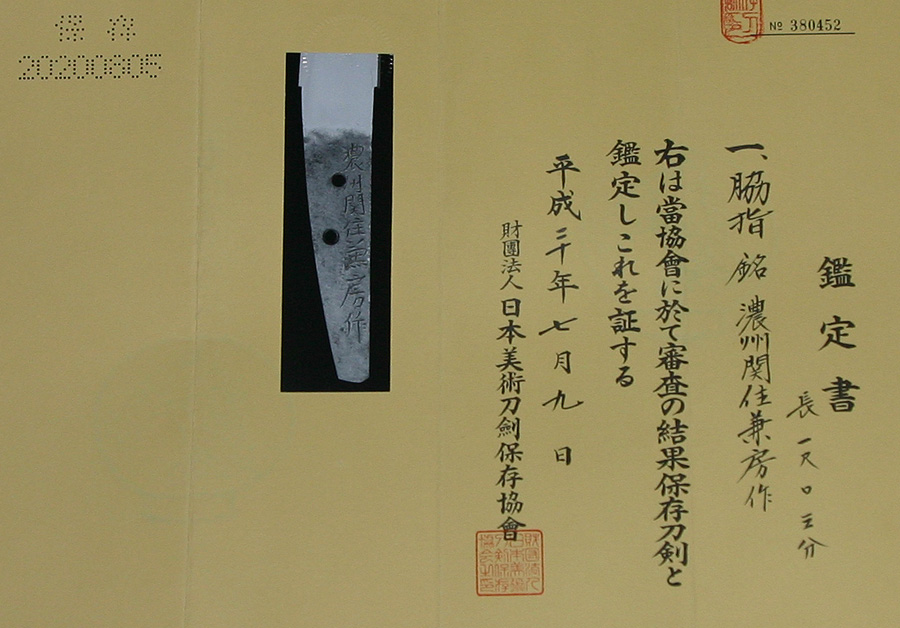 鑑定書
一、脇指 銘 濃州関住兼房作
長 一尺〇三分
右は當協會に於て審査の結果保存刀剣と
鑑定しこれを証する
平成二十年七月九日
財團法人 日本美術刀劍保存協會
№ 380452
濃州関住兼房作
保存
20200805